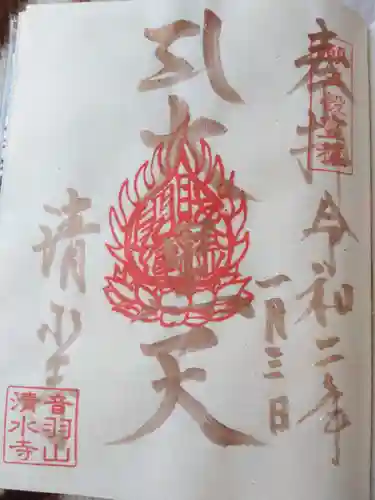 奉拝 令和二年
一月三日
大黒天
清水寺
音羽山
清水寺